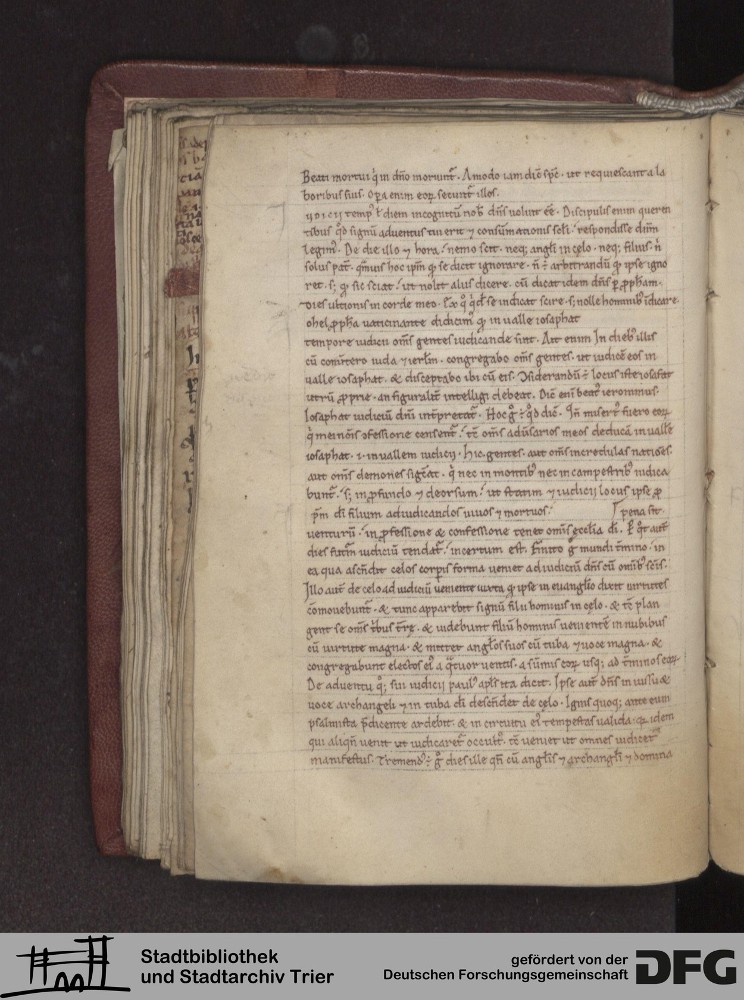 Beati mortui q̇ in dño moriunt᷑. Amodo iam dič sp̄c. ut requiescant a la
boribus suis. Opa enim eoꝝ secunt᷑ illos.
temp᷒ ł diem incognitū nob̄ dn̄s voluit eē. Discipulis enim queren
tibus qd̄ signū adventus tui erit ⁊ consūmationis s̄c̄li. respondisse
legim᷒. De die illo ⁊ hora nemo scit. neq; angli in celo. neq; filius. n̄
solus pat᷑. qm̄uis hoc ipm̄ ꝙ se dicit ignorare. n̄ ÷ arbitrandū ꝙ ipse igno
ret. s; ꝙ sic sciat ut nolit aliis dicere. cū dicat idem dn̄s ꝑ ꝓpham.
Dies ultionis in corde meo. se indicat scire. s; nolle hominib᷒ īdicare.
ohel ꝓpha vaticinante didicim᷒ ꝙ in valle iosaphat
tempore iudicii om̄s gentes iudicande sint. Ait enim In dieb᷒ illis
cū com̄tero iuda ⁊ ierłm. congregabo om̄s gentes. ut iudicē eos in
valle iosaphat. & disceptabo ibi cū eis. ÷ locus iste iosafat
utrū ꝓprie. an figuralit᷑ intelligi debeat. Dič eni᷒ beat᷒ ieronimus.
Iosaphat iudiciū dn̄i int᷑pretat᷑. Hoc g̊ fuero eoꝝ
q̇ mei nōis ꝯfessione censent᷑. tc̄ om̄s adūsarios meos deducā in vallē
iosaphat. .i. in vallem iudicii. Hic gentes. aut om̄s incredulas natiōes.
aut om̄s demones sig̅cat. q̇ nec in montib᷒ nec in campestrib᷒ iudica
bunt᷑. s; in ꝓfundo ⁊ deorsum. ut statim ⁊ iudicii locus ipse ꝓ
pena sit.
di filium ad iudicandos vivos ⁊ mortuos.
venturū. in ꝓfessione & confessione tenet om̄is ecclia di.
dies futur᷒ iudiciū tendat᷑. incertum est. Finito g̊ mundi t᷑mino. in
ea qua ascn̄dit celos corpis forma veniet ad iudiciū dn̄s cū omib᷒ sc̄is.
Illo aut̄ de celo ad iudiciū veniente iuxta ꝙ ipse in euanglio dicit virtutes
cōmovebunt᷑. & tunc apparebit signū filii hominis in celo. & tc̄ plan
gent se om̄s t᷑bus t᷑re. & videbunt filiū hominis venientē in nubibus
cū virtute magna. & mittet anglos suos cū tuba ⁊ voce magna. &
congregabunt electos ei᷒ a q̇tuor ventis. a sūmis eoꝝ usq; ad t᷑minos eoꝝ.
De adventu q; sui iudicii paul᷒ apls ita dicit. Ipse aut̄ dn̄s in iussu &
voce archangeli ⁊ in tuba di descn̄det de celo. Ignis quoq; ante eum
psalmista p̄dicente ardebit. & in circuitu ei᷒ tempestas valida. idem
qui aliqn̄ venit ut iudicaret᷑ occult᷒. tc̄ veniet ut omnes iudicet
manifestus. Tremend᷒ ÷ g̊ dies ille qn̄ cū anglis ⁊ archanglis ⁊ domina
Stadtbibliothek
und Stadtarchiv Trier
gefördert von der
Deutschen Forschungsgemeinschaft
DFG